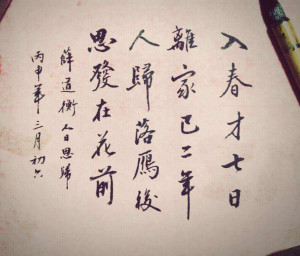 入春才七日
離家已二年
人歸落雁後
思發在花前
薛道衡 人日思歸
丙申年三月初六